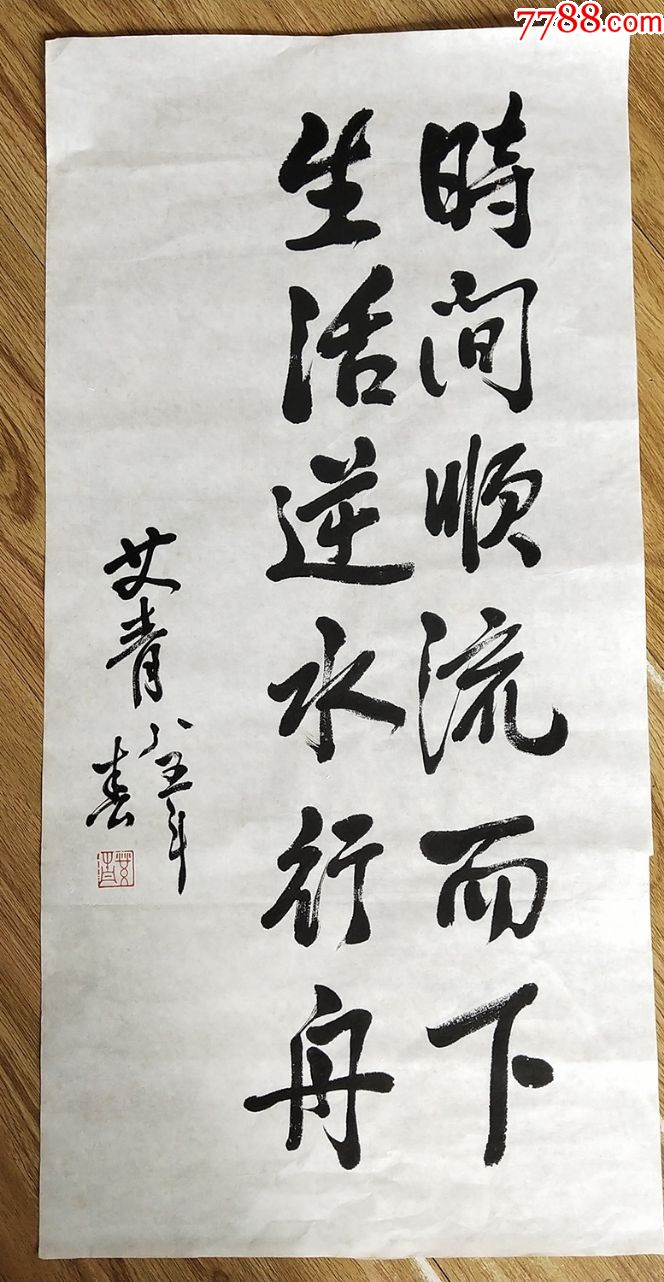 7788.com
時间顺流而下
生活逆水行舟
艾青
八五年
春